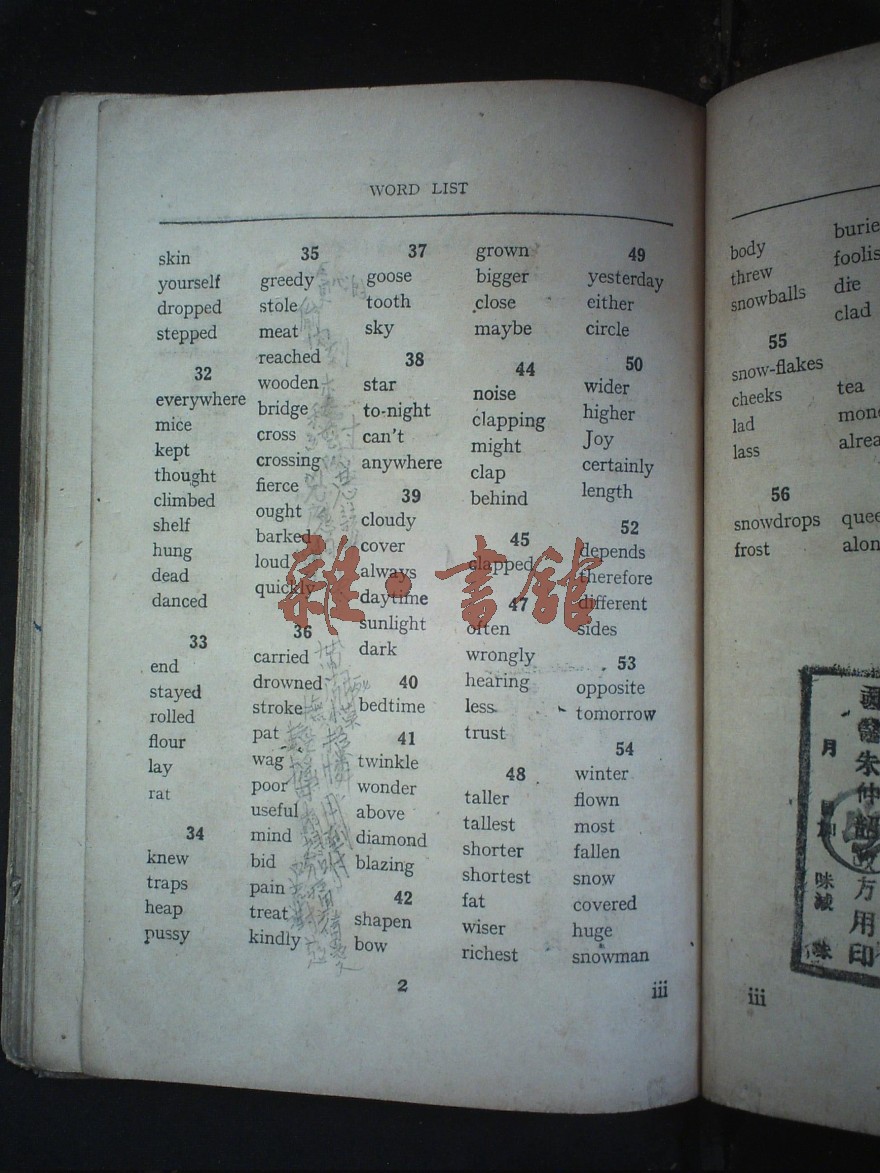 WORD LIST
skin
yourself
dropped
stepped
32
everywhere
mice
kept
thought
climbed
shelf
hung
dead
danced
33
end
stayed
rolled
flour
lay
rat
34
knew
traps
heap
pussy
35
greedy
stole
meat
reached
wooden
bridge
cross
crossing
fierce
ought
barked
loud
quickly
36
carried
drowned
stroke
pat
wag
poor
useful
mind
bid
pain
treat
kindly
37
goose
tooth
sky
38
star
to-night
can't
anywhere
39
cloudy
cover
always
daytime
sunlight
dark
40
bedtime
41
twinkle
wonder
above
diamond
blazing
42
shapen
bow
grown
bigger
close
maybe
44
noise
clapping
might
clap
behind
45
clapped
47
often
wrongly
hearing
less
trust
48
taller
tallest
shorter
shortest
fat
wiser
richest
49
yesterday
either
circle
50
wider
higher
Joy
certainly
length
52
depends
therefore
different
sides
53
opposite
tomorrow
54
winter
flown
most
fallen
snow
covered
huge
snowman
2
iii
雜·書館
body
threw
snowballs
55
snow-flakes
cheeks
lad
lass
56
snowdrops
frost
die
clad
tea
iii
月
方用印